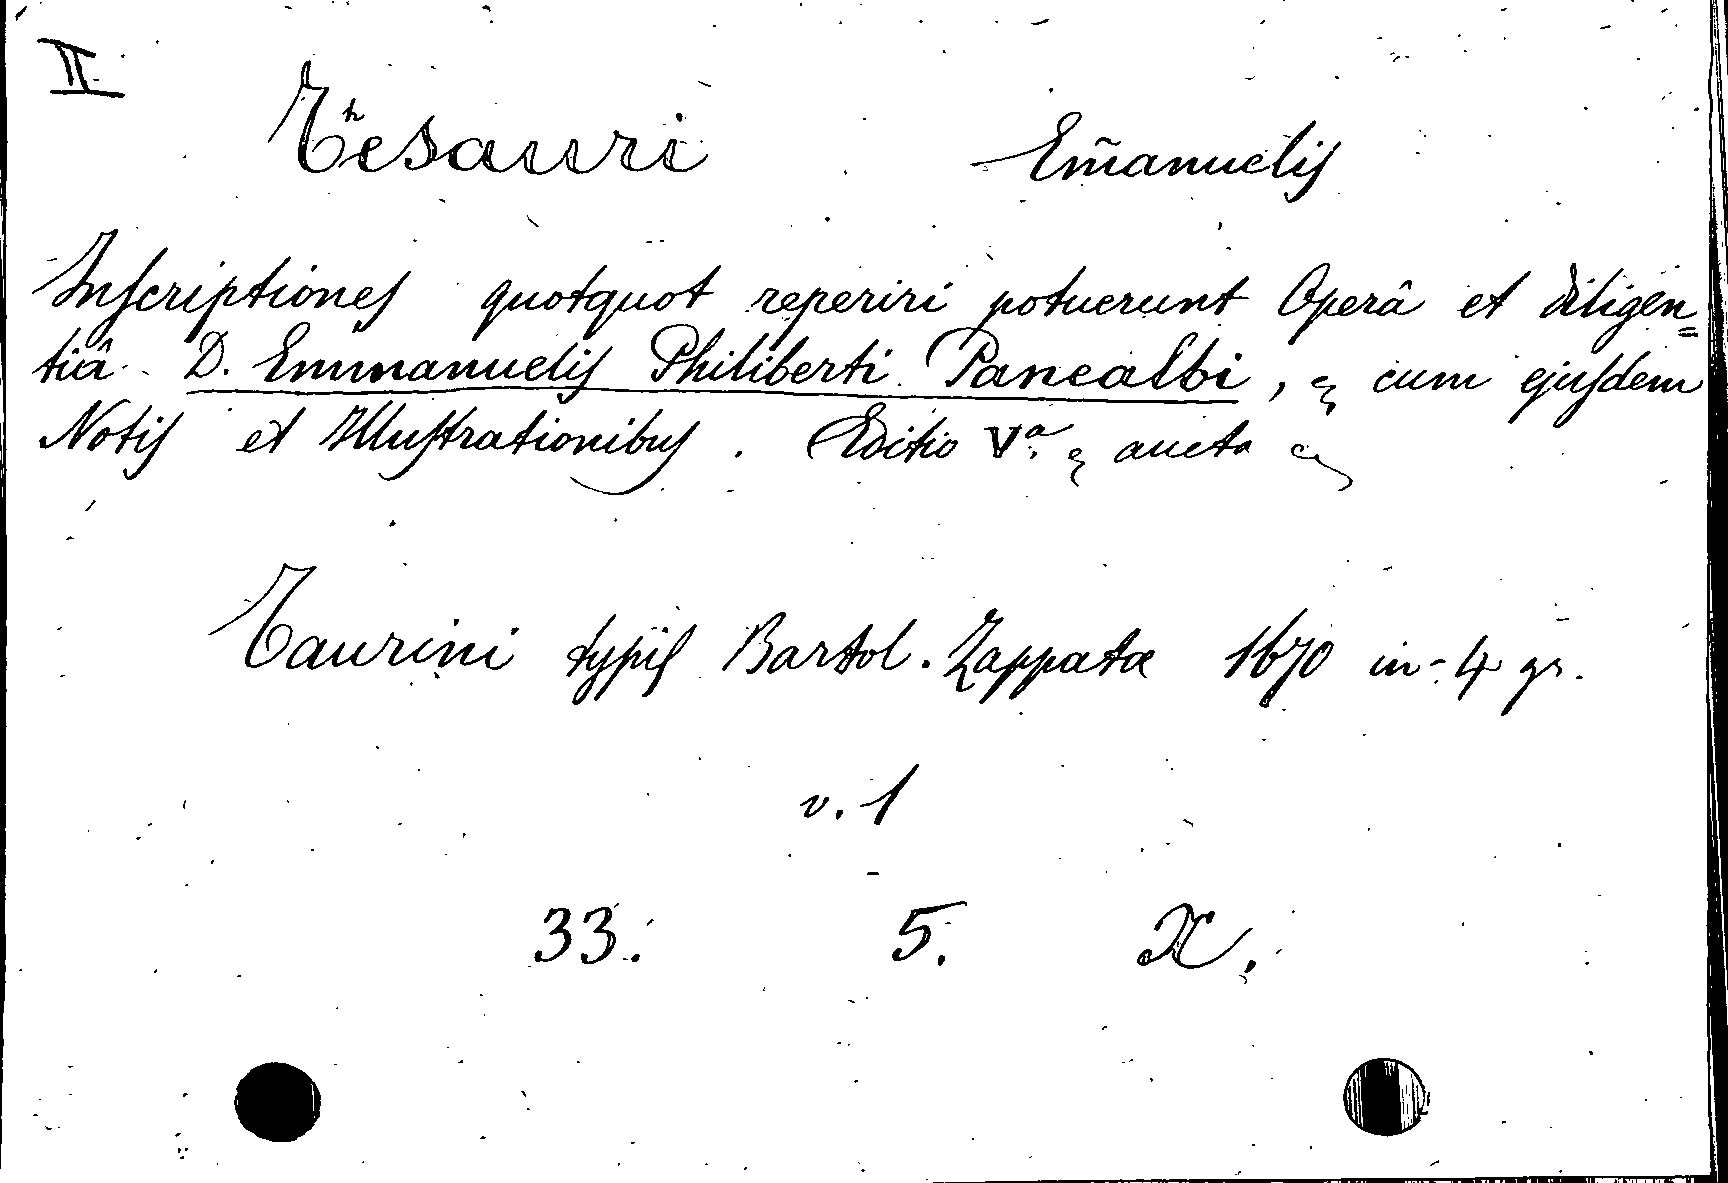 II
Thesauri Em̃anuelis
Inscriptiones quotquot reperiri potuerunt Operâ et diligen=
tiâ D. Emmanuelis Philiberti Panealbi, & cum ejusdem
Notis et Illustrationibus. Editio Vª. & aucta &
Taurini typis Bartol. Zappatæ 1670 in-4 gr.
v. 1
33. 5. X.